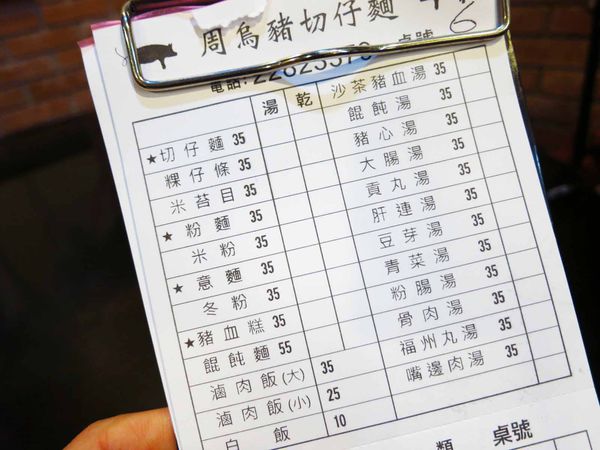 周烏豬切仔麵
6
桌號
電話:22623376
湯 乾
★切仔麵 35
粿仔條 35
米苔目 35
★粉麵 35
米粉 35
★意麵 35
冬粉 35
★豬血糕 35
餛飩麵 55
滷肉飯(大) 35
滷肉飯(小) 25
白飯 10
沙茶豬血湯 35
餛飩湯 45
豬心湯 35
大腸湯 35
貢丸湯 35
肝連湯 35
豆芽湯 35
青菜湯 35
粉腸湯 35
骨肉湯 35
福州丸湯 35
嘴邊肉湯 35
類 桌號